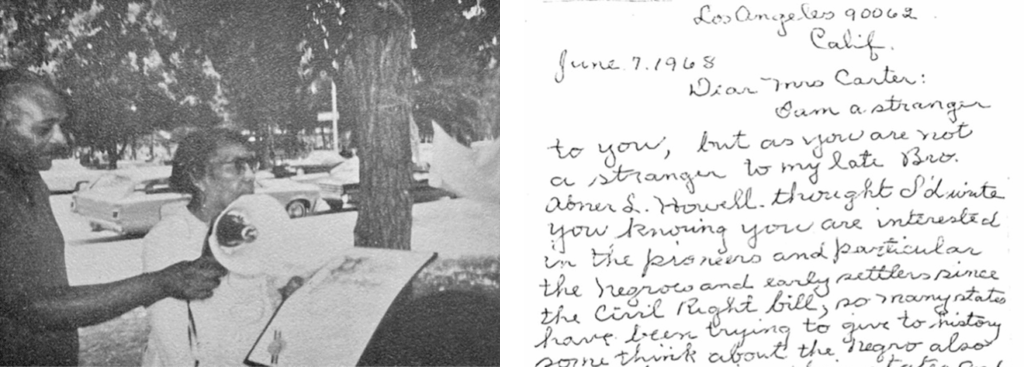 Los Angeles 90062
Calif.
June 7. 1968
Dear Mrs Carter:
I am a stranger
to you, but as you are not
a stranger to my late Bro.
Abner L. Howell. thought I'd write
you knowing you are interested
in the pioneers and particular
the Negros and early settlers since
the Civil Right bill, so many states
have been trying to give to history
some think about the Negro also